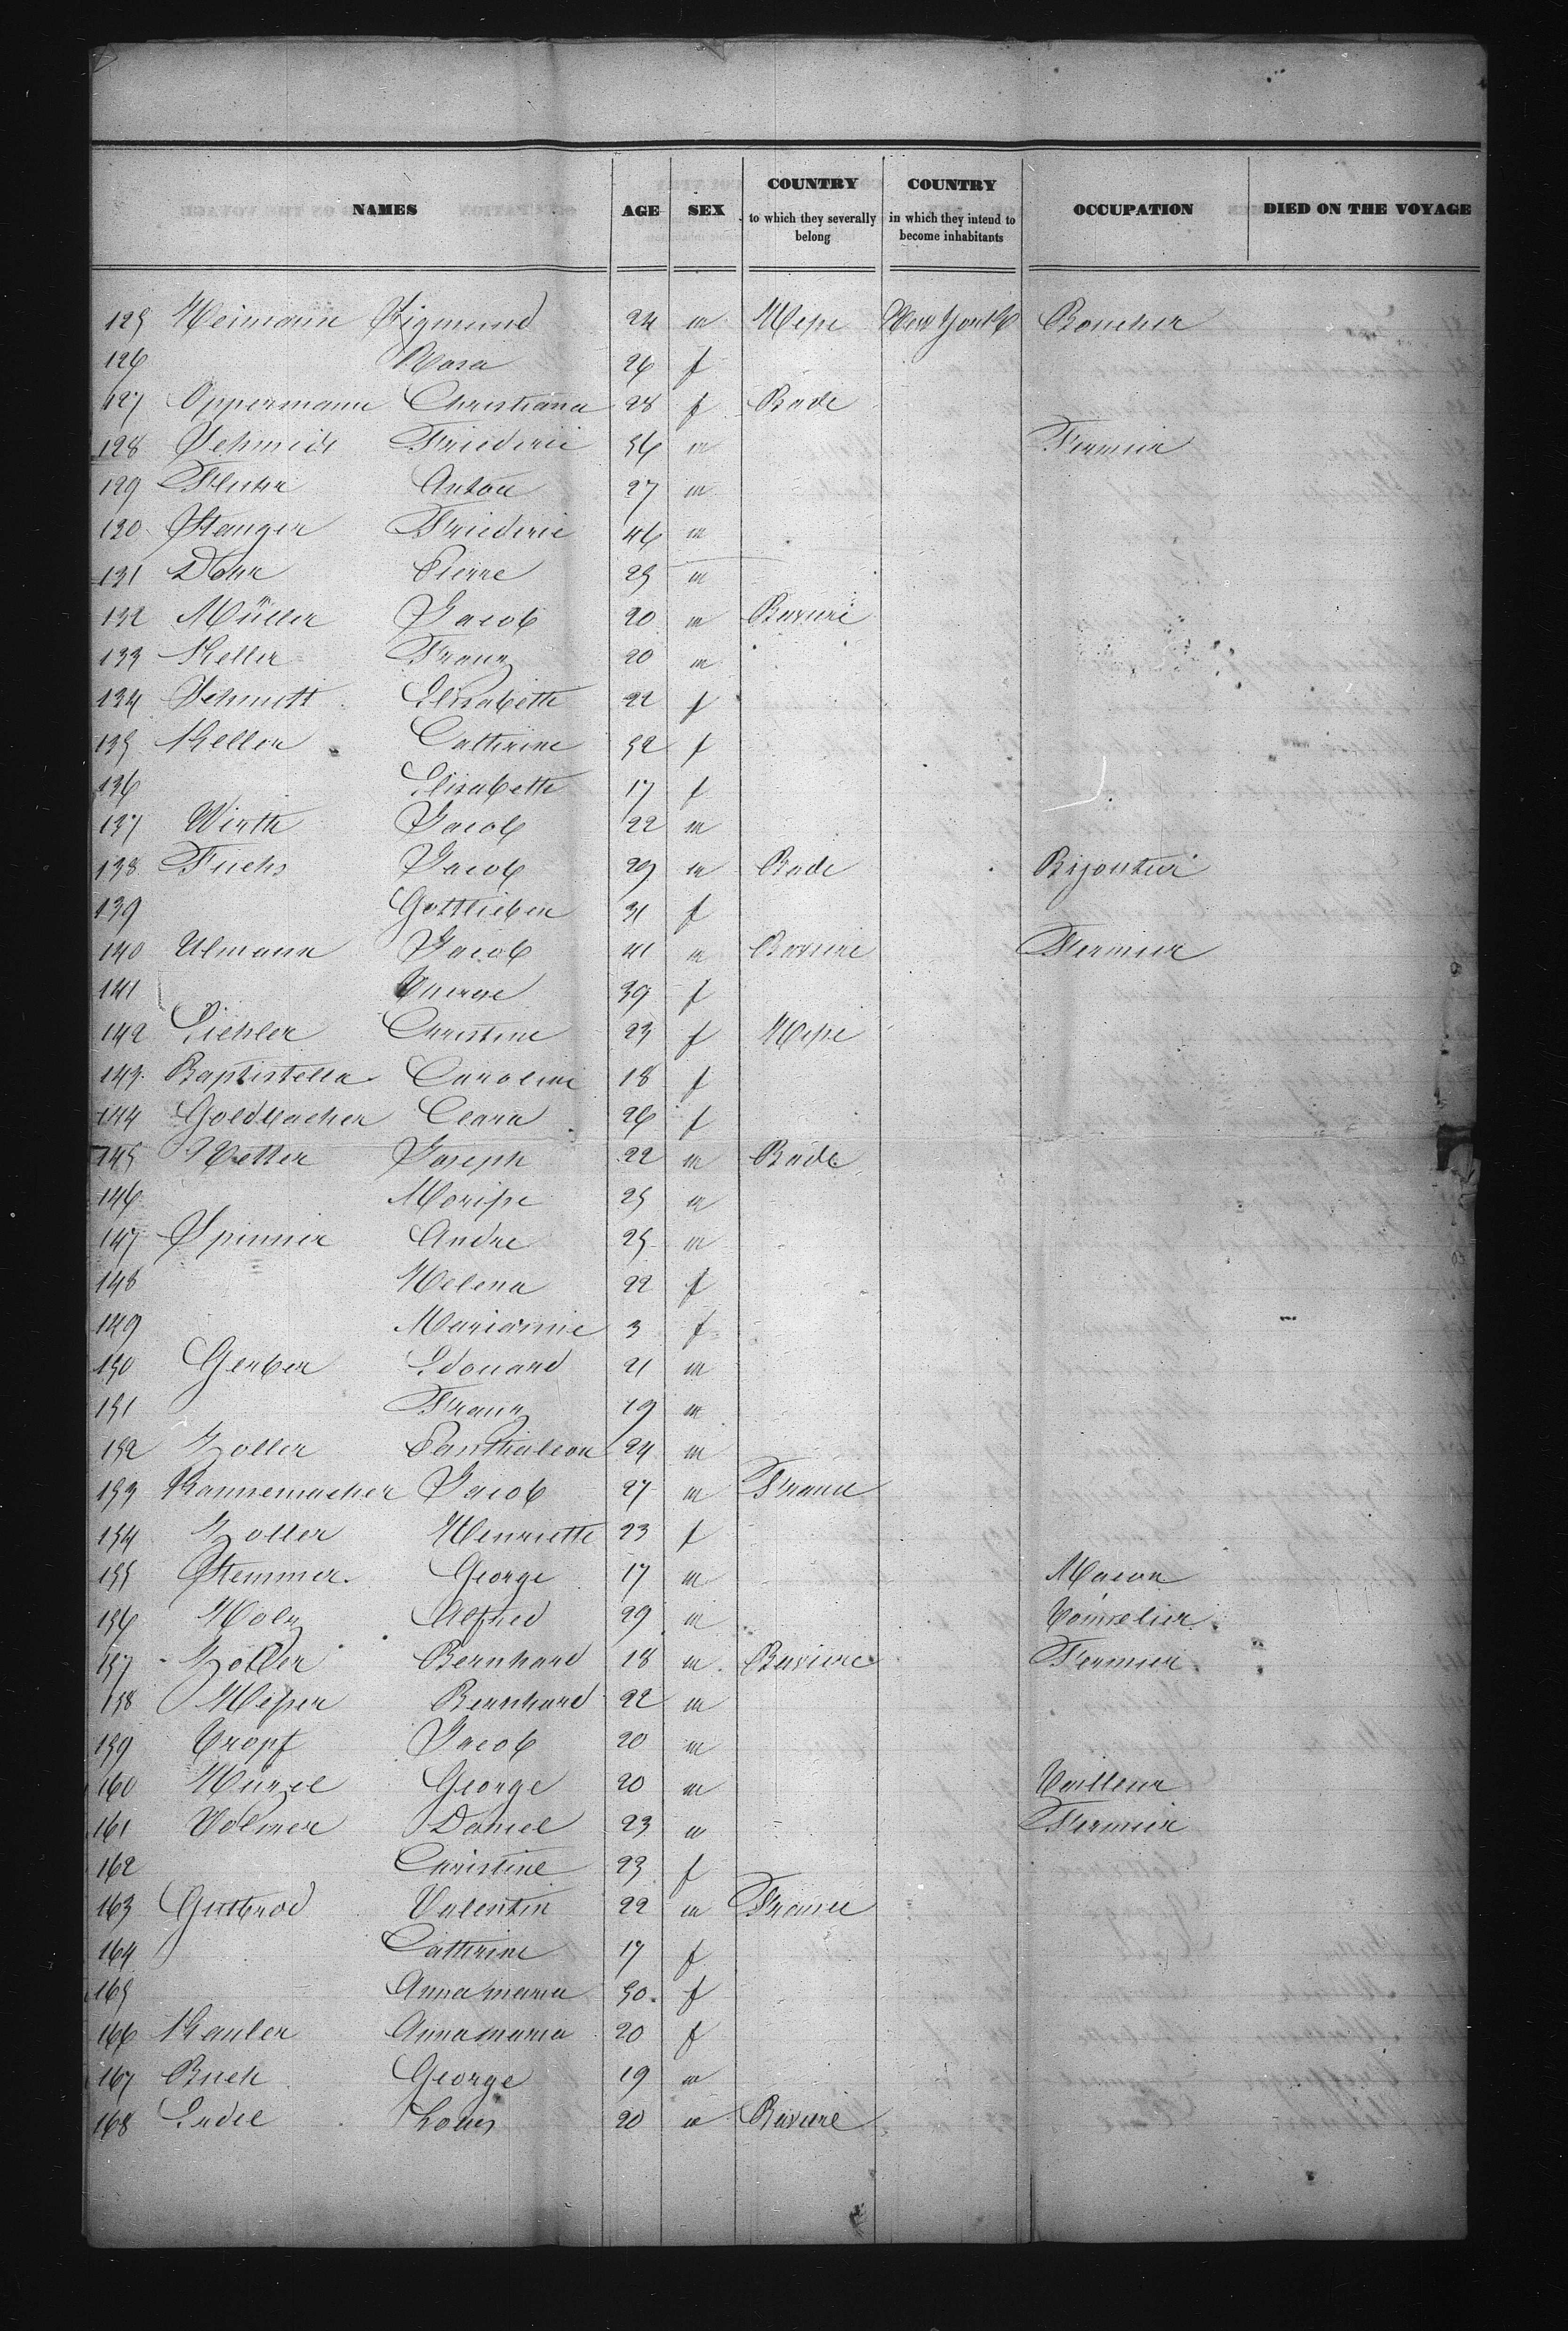 NAMES AGE SEX COUNTRY to which they severally belong COUNTRY in which they intend to become inhabitants OCCUPATION DIED ON THE VOYAGE
125 Heimann Sigmund 24 m Hesse New York Boucher
126 Rosa 26 f
127 Oppermann Christiana 28 f Bade
128 Schmidt Friederic 36 m Fermier
129 Anton 27 m
130 Stanger Friederic 46 m
131 Dohr Pierre 25 m
132 Müller Jacob 20 m Baviere
133 Keller Franz 20 m
134 Schmitt Elisabeth 22 f
135 Keller Catherine 52 f
136 Elisabeth 17 f
137 Wirth Jacob 22 m
138 Fuchs Jacob 29 m Bade Bijoutier
139 Gottlieben 31 f
140 Ulmann Jacob 41 m Baviere Fermier
141 39 f
142 Christine 23 f Hesse
143 Baptistella Caroline 18 f
144 Goldbacher Clara 26 f
145 Netter Joseph 22 m Bade
146 Morisse 25 m
147 Spinner Andre 25 m
148 Helena 22 f
149 Marianne 3 f
150 Gerber Edouard 21 m
151 Franz 19 m
152 Zoller Panthaleon 24 m
153 Kannemacher Jacob 27 m France
154 Zoller Henriette 23 f
155 Stemmer George 17 m Macon
156 Holz Alfred 29 m Tonnelier
157 Zoller Bernhard 18 m Baviere Fermier
158 Hesser Bernhard 22 m
159 Tropf Jacob 20 m
160 George 20 m Tailleur
161 Volmer Daniel 23 m Fermier
162 Christine 23 f
163 Gutbrod Valentin 22 m France
164 Catherine 17 f
165 Anna maria 50 f
166 Kauler Anna maria 20 f
167 Buch George 19 m
168 Erdel Louis 20 m Baviere